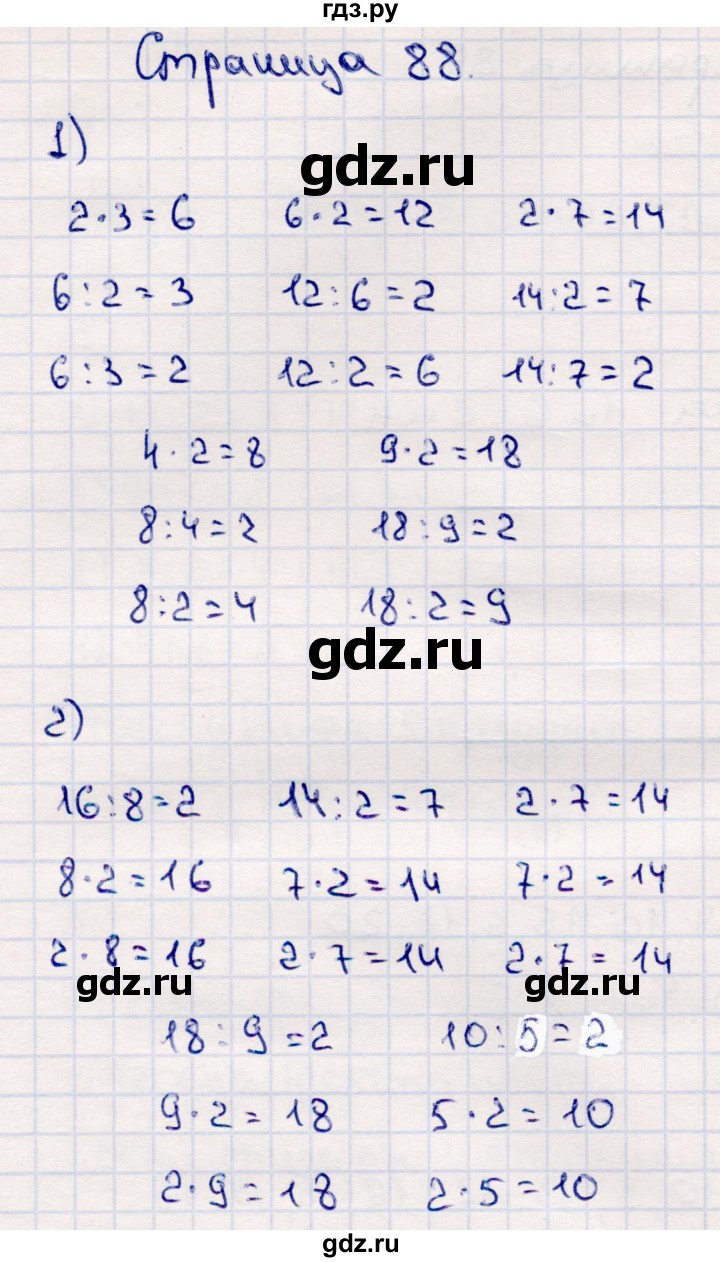 гдз.ру
Страница 88.
1)
gdz.ru
2·3=6 6·2=12 2·7=14
6:2=3 12:6=2 14:2=7
6:3=2 12:2=6 14:7=2
4·2=8 9·2=18
8:4=2 18:9=2
8:2=4 18:2=9
gdz.ru
2)
16:8=2 14:2=7 2·7=14
8·2=16 7·2=14 7·2=14
2·8=16 2·7=14 2·7=14
gdz.ru gdz.ru
18:9=2 10:5=2
9·2=18 5·2=10
2·9=18 2·5=10
gdz.ru